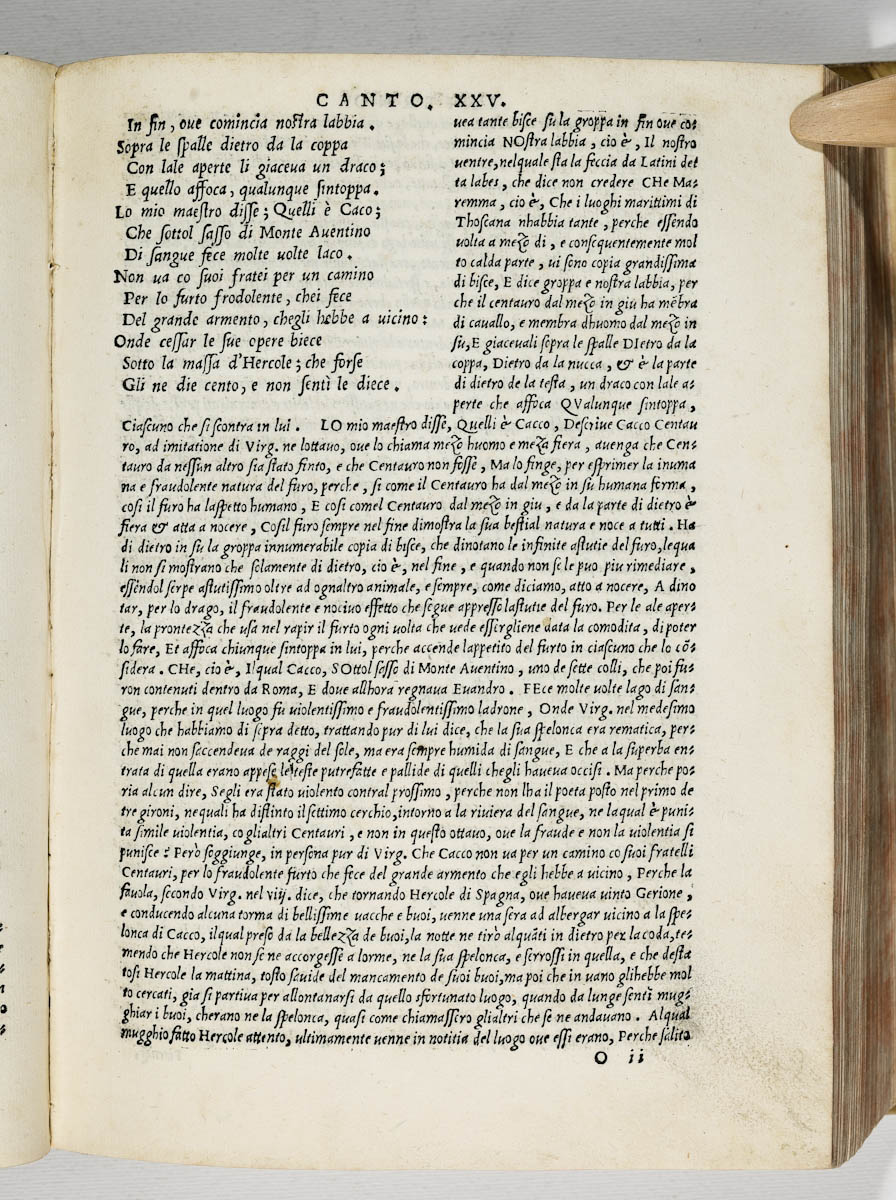 CANTO. XXV.
In fin, oue comincia nostra labbia.
Sopra le spalle dietro da la coppa
Con lale aperte li giaceua un draco;
E quello affoca, qualunque sintoppa.
Lo mio maestro disse; Quelli è Caco;
Che sottol sasso di Monte Auentino
Di sangue fece molte uolte laco.
Non ua co suoi fratei per un camino
Per lo furto frodolente, chei fece
Del grande armento, chegli hebbe a uicino:
Onde cessar le sue opere biece
Sotto la massa d'Hercole; che forse
Gli ne die cento, e non sentì le diece.
uea tante bisce su la groppa in fin oue co-
mincia NOstra labbia, cio è, Il nostro
uentre, nelquale sta la feccia da Latini det
ta labes, che dice non credere CHe Ma-
remma, cio è, Che i luoghi marittimi di
Thoscana nhabbia tante, perche essendo
uolta a mezo di, e consequentemente mol
to calda parte, ui sono copia grandissima
di bisce, E dice groppa e nostra labbia, per
che il centauro dal mezo in giu ha mēbra
di cauallo, e membra dhuomo dal mezo in
su, E giaceuali sopra le spalle DIetro da la
coppa, Dietro da la nucca, & è la parte
di dietro de la testa, un draco con lale a-
perte che affoca QValunque sintoppa,
Ciascuno che si scontra in lui. LO mio maestro disse, Quelli è Cacco, Descriue Cacco Centau
ro, ad imitatione di Virg. ne lottauo, oue lo chiama mezo huomo e meza fiera, auenga che Cen-
tauro da nessun altro sia stato finto, e che Centauro non fosse, Ma lo finge, per esprimer la inuma
na e fraudolente natura del furo, perche, si come il Centauro ha dal mezo in su humana forma,
cosi il furo ha laspetto humano, E cosi comel Centauro dal mezo in giu, e da la parte di dietro è
fiera & atta a nocere, Cosil furo sempre nel fine dimostra la sua bestial natura e noce a tutti. Ha
di dietro in su la groppa innumerabile copia di bisce, che dinotano le infinite astutie del furo, lequa
li non si mostrano che solamente di dietro, cio è, nel fine, e quando non se le puo piu rimediare,
essendol serpe astutissimo oltre ad ognaltro animale, e sempre, come diciamo, atto a nocere, A dino
tar, per lo drago, il fraudolente e nociuo effetto che segue appresso lastutie del furo. Per le ale aper-
te, la prontezza che usa nel rapir il furto ogni uolta che uede essirgliene data la comodita, di poter
lo fare, Et affoca chiunque sintoppa in lui, perche accende lappetito del furto in ciascuno che lo cō-
sidera. CHe, cio è, Ilqual Cacco, SOttol sasso di Monte Auentino, uno de sette colli, che poi fu-
ron contenuti dentro da Roma, E doue allhora regnaua Euandro. FEce molte uolte lago di san-
gue, perche in quel luogo fu uiolentissimo e fraudolentissimo ladrone, Onde Virg. nel medesimo
luogo che habbiamo di sopra detto, trattando pur di lui dice, che la sua spelonca era rematica, per-
che mai non saccendeua de raggi del sole, ma era sempre humida di sangue, E che a la superba en-
trata di quella erano appese le teste putrefatte e pallide di quelli chegli haueua occisi. Ma perche po-
ria alcun dire, Segli era stato uiolento contral prossimo, perche non lha il poeta posto nel primo de
tre gironi, ne quali ha distinto il settimo cerchio, intorno a la riuiera del sangue, ne laqual è puni-
ta simile uiolentia, co glialtri Centauri, e non in questo ottauo, oue la fraude e non la uiolentia si
punisce: Però soggiunge, in persona pur di Virg. Che Cacco non ua per un camino co suoi fratelli
Centauri, per lo fraudolente furto che fece del grande armento che egli hebbe a uicino, Perche la
fauola, secondo Virg. nel viij. dice, che tornando Hercole di Spagna, oue haueua uinto Gerione,
e conducendo alcuna torma di bellissime uacche e buoi, uenne una sera ad albergar uicino a la spe-
lonca di Cacco, ilqual preso da la bellezza de buoi, la notte ne tirò alquāti in dietro per la coda, te-
mendo che Hercole non se ne accorgesse a lorme, ne la sua spelonca, e serrossi in quella, e che desta
tosi Hercole la mattina, tosto sauide del mancamento de suoi buoi, ma poi che in uano glihebbe mol
to cercati, gia si partiua per allontanarsi da quello sfortunato luogo, quando da lunge sentì mug-
ghiar i buoi, cherano ne la spelonca, quasi come chiamassero glialtri che se ne andauano. Alqual
mugghio fatto Hercole attento, ultimamente uenne in notitia del luogo oue essi erano, Perche salito
O ii